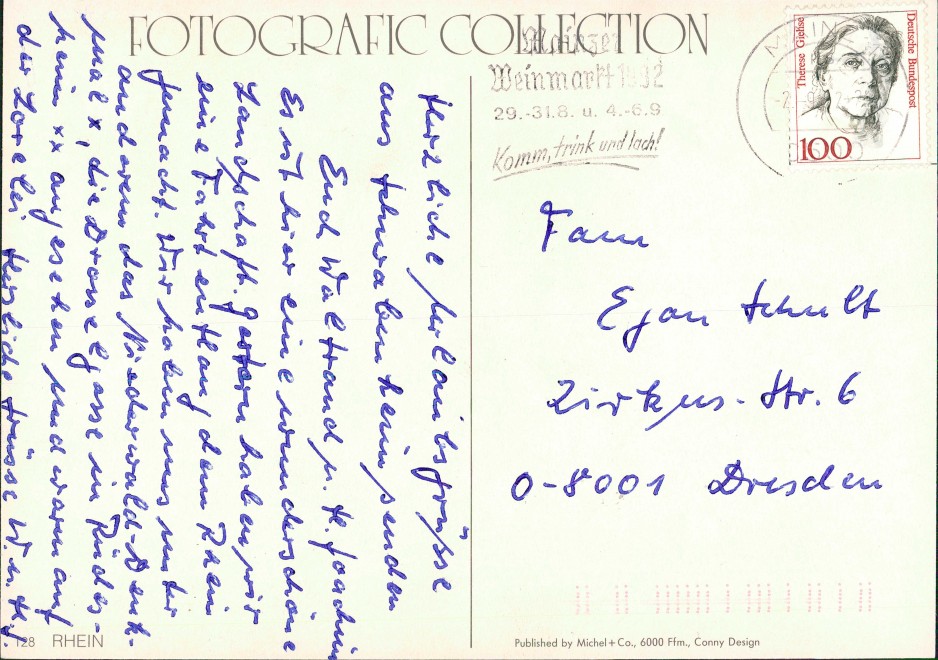 FOTOGRAFIC COLLECTION
Mainzer
Weinmarkt 1992
29.-31.8. u. 4.-6.9
Komm, trink und lach!
Therese Giehse
Deutsche Bundespost
100
Herzliche Urlaubsgrüsse
aus Schwabenheim senden
Euch Waltraud u. H. Joachim
Es ist hier eine wunderschöne
Landschaft. Gestern haben wir
eine Fahrt entlang dem Rhein
gemacht. Wir haben uns unter
anderem das Niederwald-Denk-
mal x, die Drosselgasse in Rüdes-
heim xx angesehen und waren auf
der Lorelei Herzliche Grüsse W. u. H.J.
Fam
Egon Schult
Zirkus-Str. 6
O-8001 Dresden
128 RHEIN
Published by Michel + Co., 6000 Ffm., Conny Design